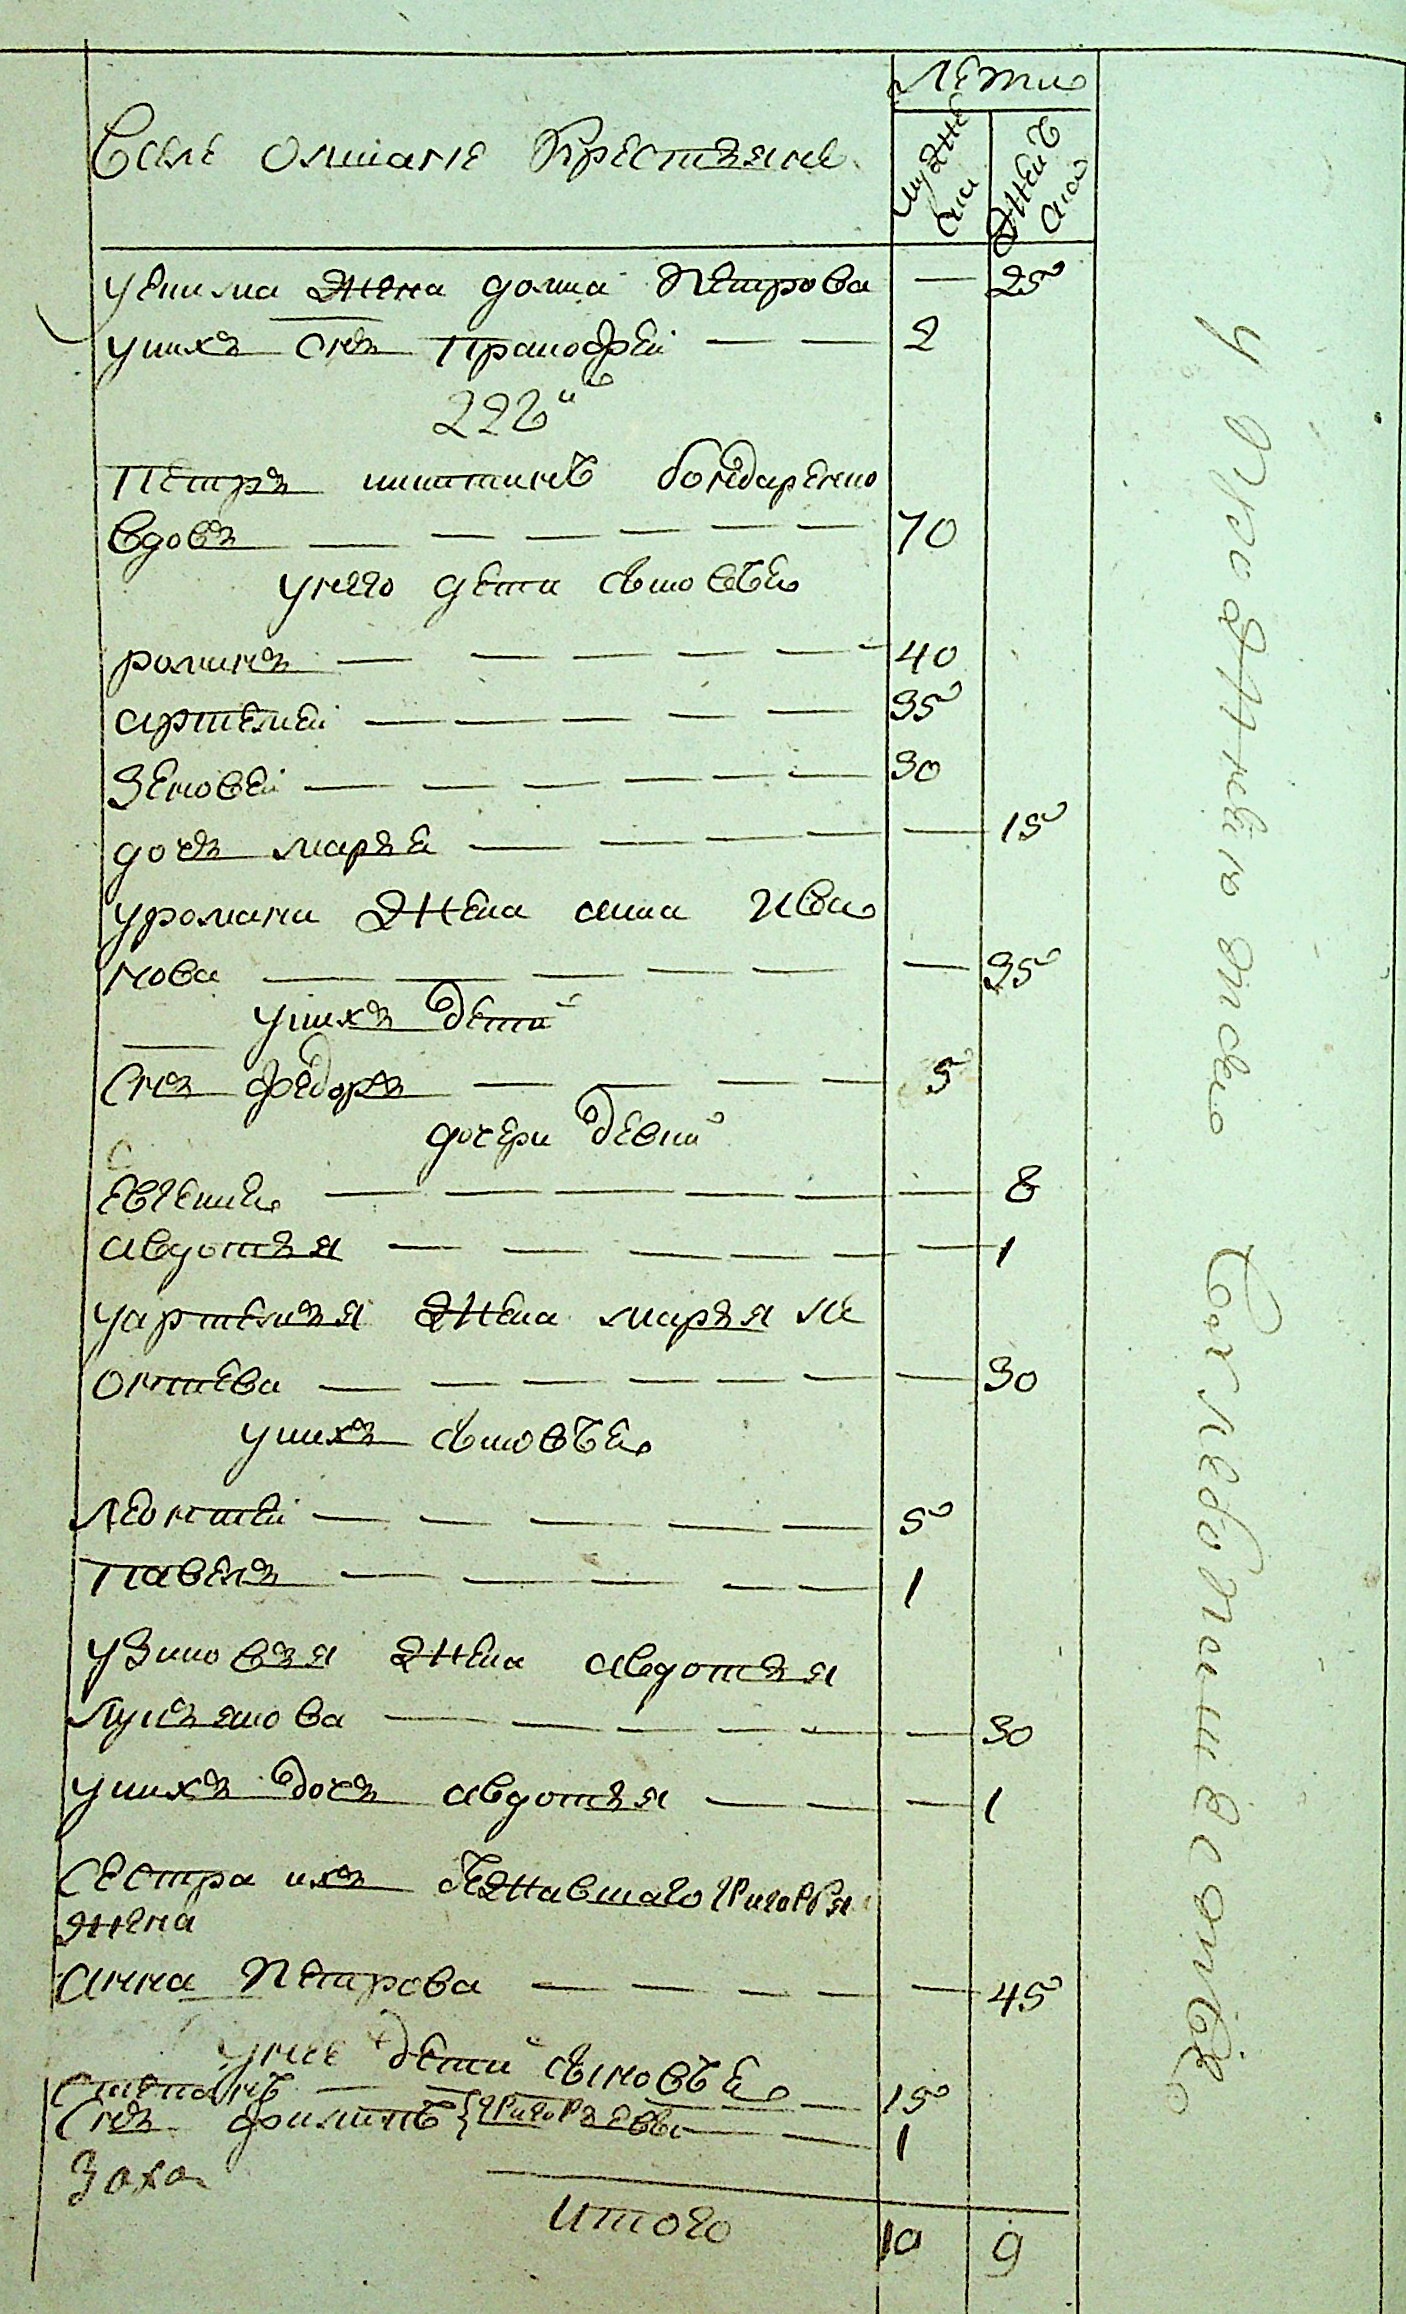 Лѣта
Селѣ Олшане Крестьяне
мужес
ка
женъ
ска
жена домна Петрова — 25
унихъ снъ — — 2
222й
Петръ никитинъ бондаренко
вдовъ — — — — — 70
унего дети сыновъя
романъ — — — — — 40
артемей — — — — — 35
Зеновей — — — — — 30
дочь марья — — — — — 15
уромана жена анна Ива
нова — — — — — — 35
унихъ дети
снъ федоръ — — — — 5
дочери девки
евгения — — — — — — 8
авдотья — — — — — — 1
уартемья жена марья ле
онтева — — — — — — — 30
унихъ сыновъя
леонтей — — — — — 5
павелъ — — — — — 1
узиновья жена авдотья
лукьянова — — — — — — 30
унихъ дочь авдотья — — — 1
сестра ихъ бежавшаго григорья
жена
анна Петрова — — — — — 45
унее дети сыновъя
степанъ — — — 15
снъ филипъ григорьевы — — 1
Заха
итого 10 9